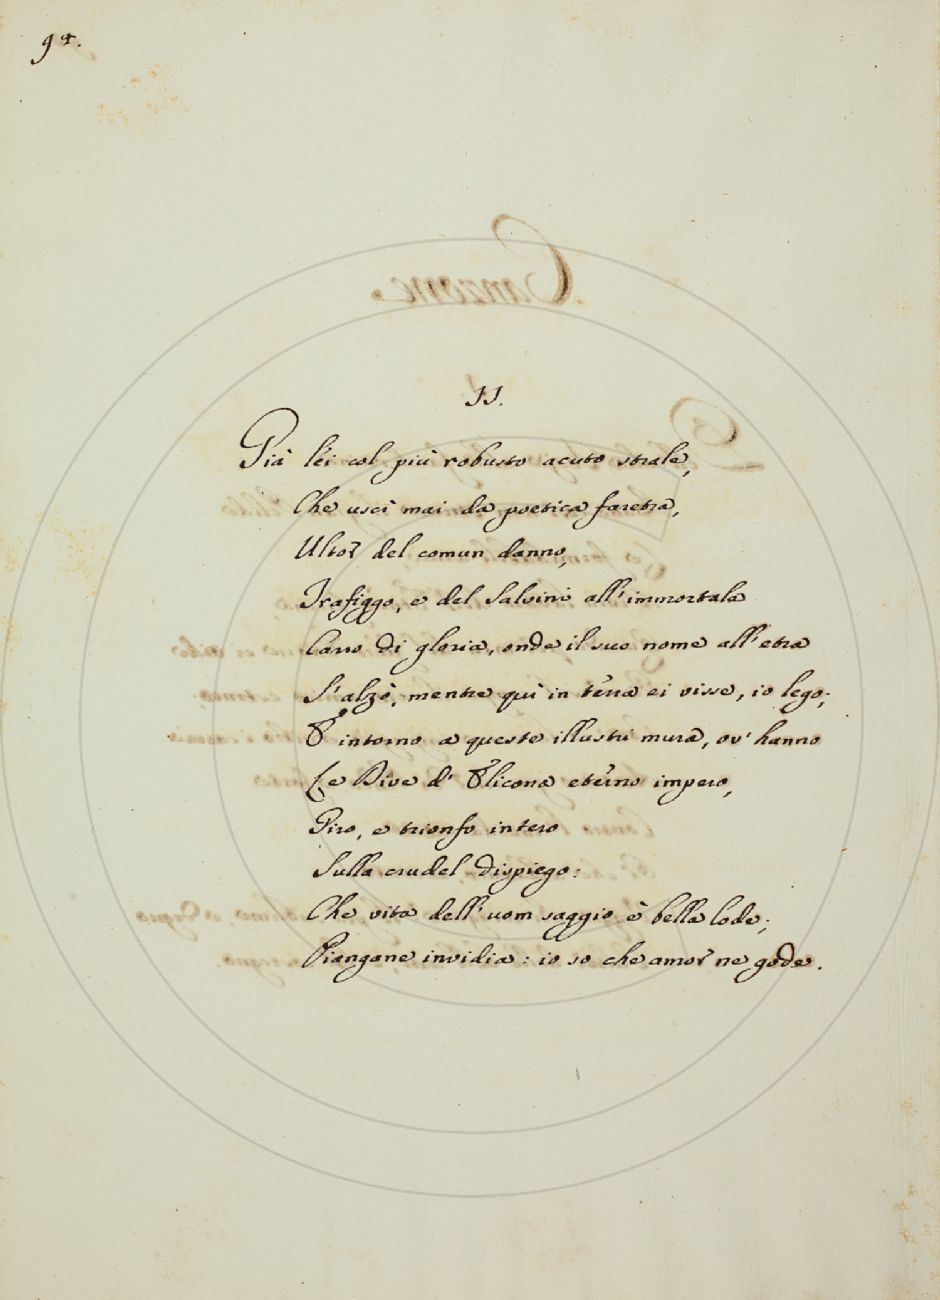 94.
II.
Già léi col più robusto acuto strale,
Che uscì mai da poetica faretra,
Ultor del comun danno,
Trafiggo, e del Salvini all'immortale
Carro di gloria, onde il suo nome all'etra
S'alzò, mentre quì in terra ei visse, io lego;
E intorno a queste illustri mura, ov'hanno
Le Dive d'Elicona eterno impero,
Giro, e trionfo intero
Sulla crudel dispiego:
Che vita dell'uom saggio è bella lode;
Piangane invidia: io so che amor ne gode.